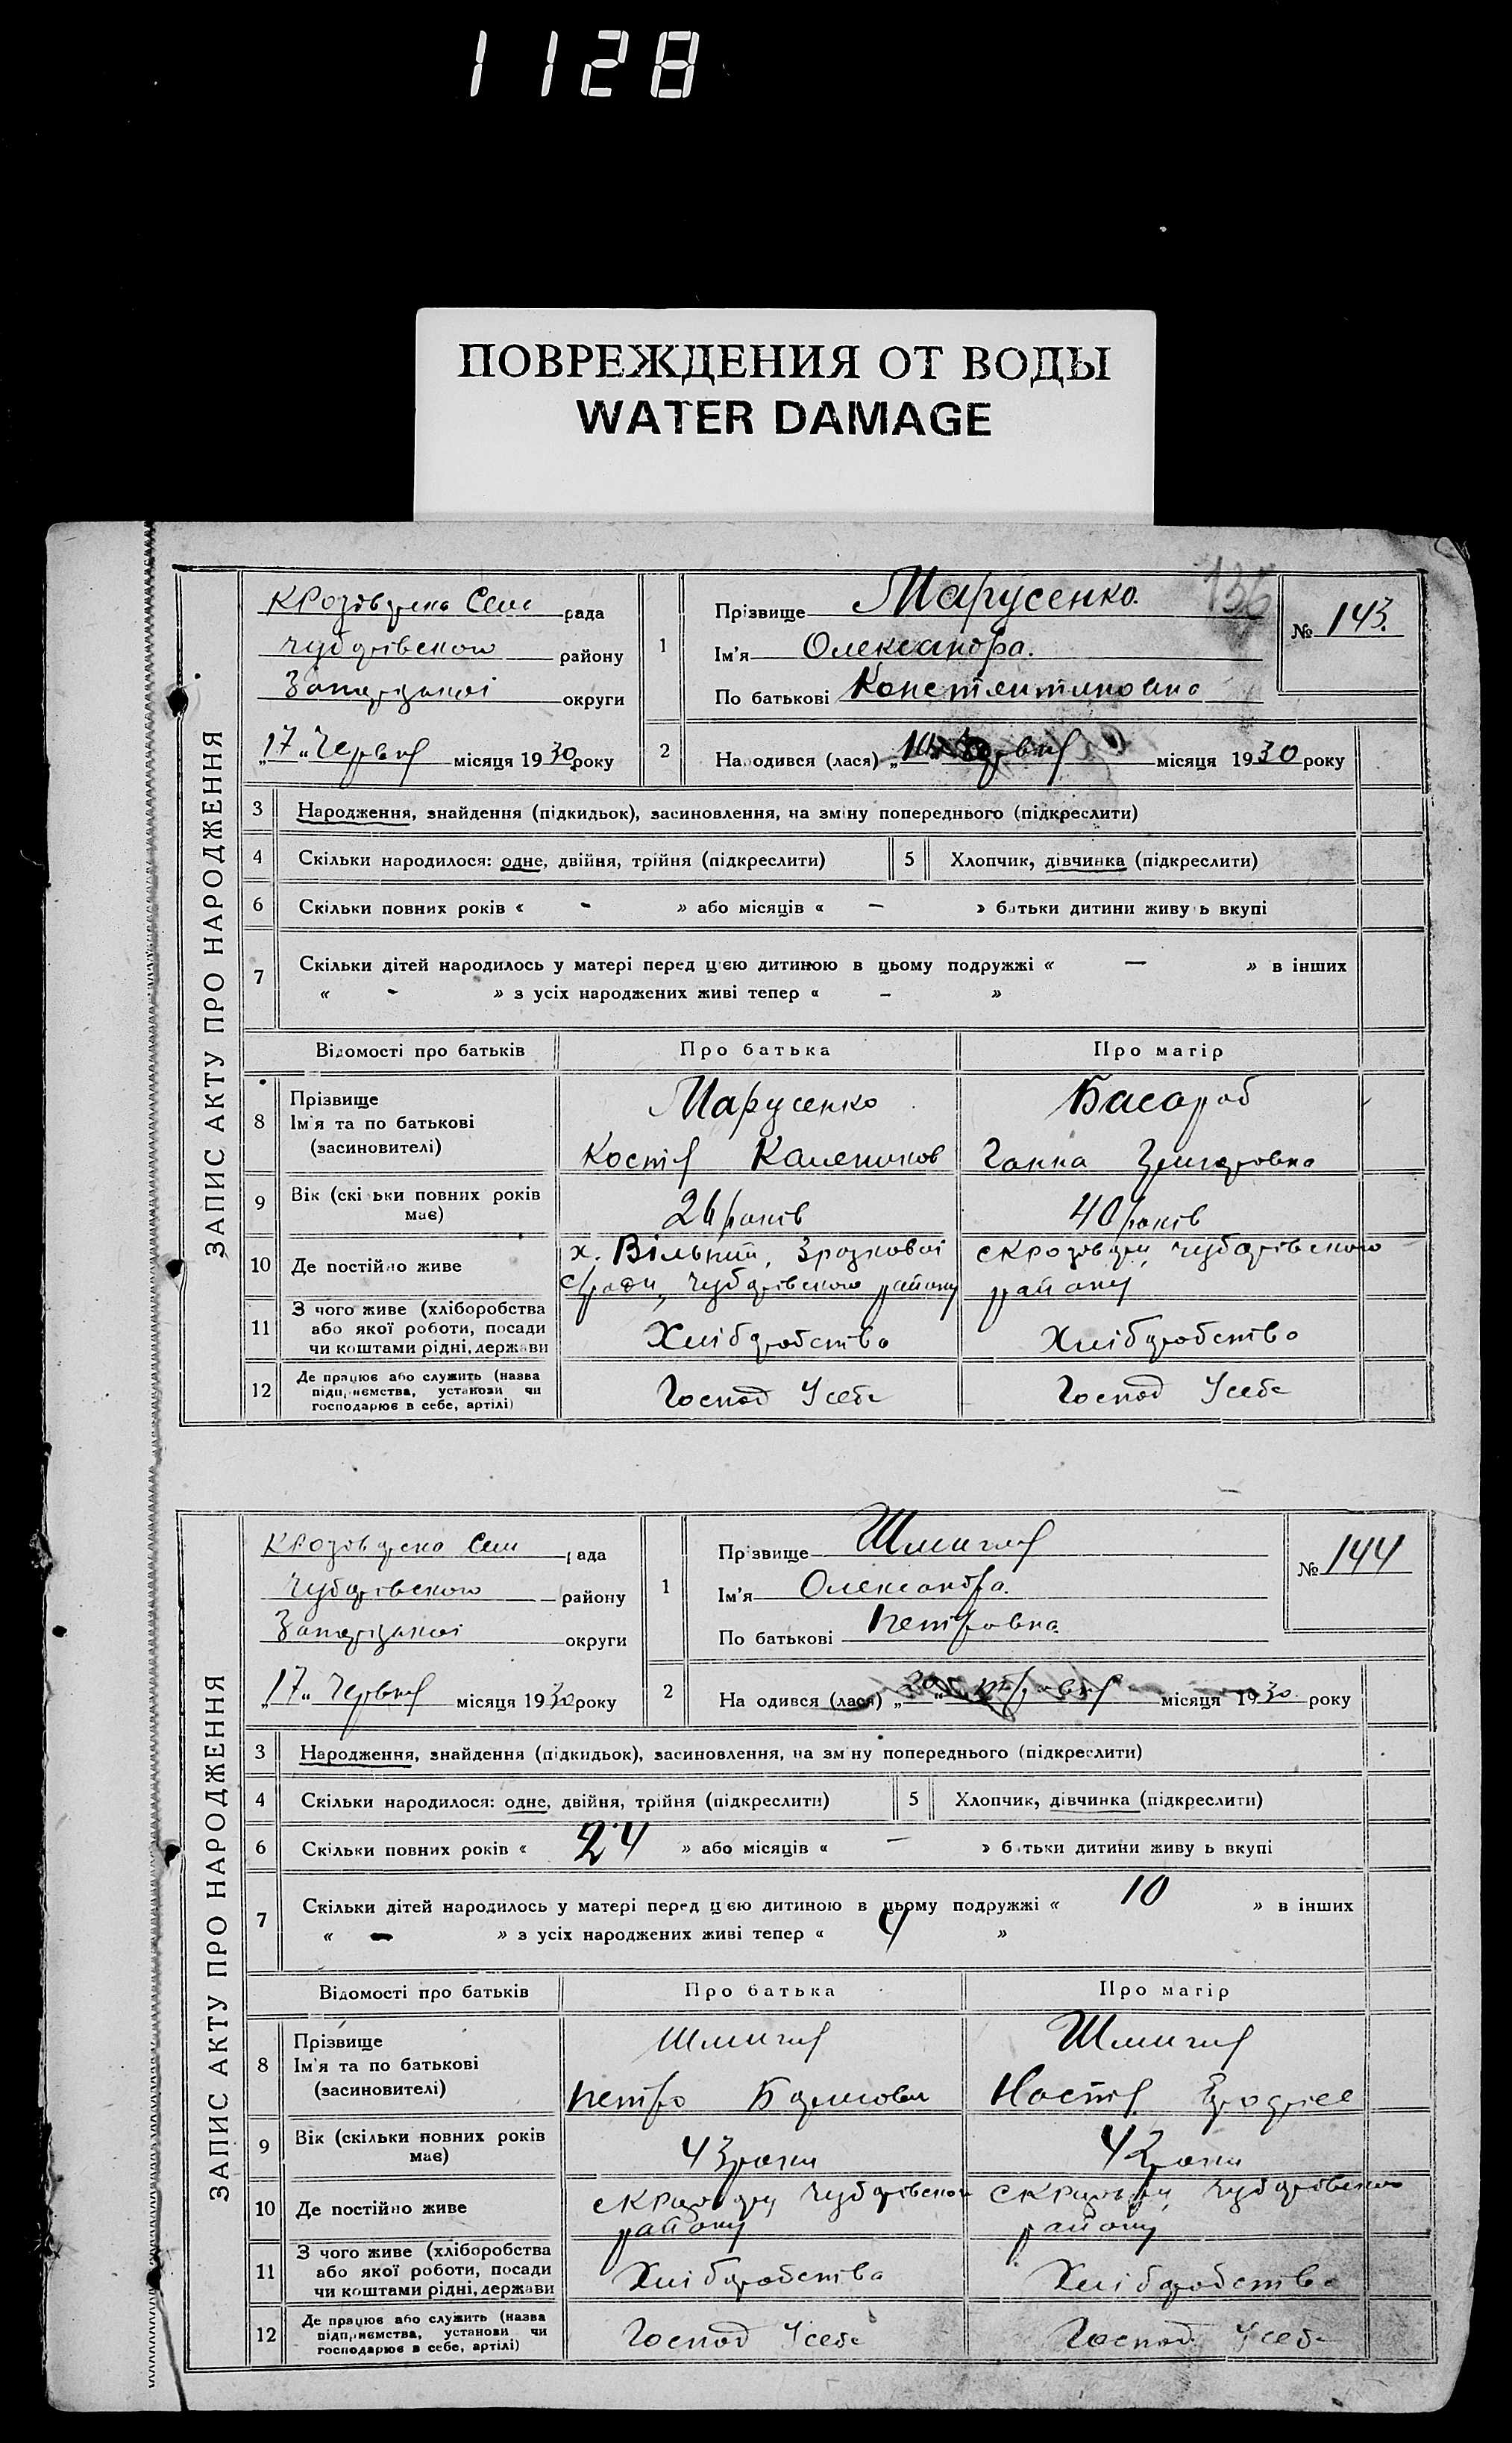 1128
ПОВРЕЖДЕНИЯ ОТ ВОДЫ
WATER DAMAGE
136
ЗАПИС АКТУ ПРО НАРОДЖЕННЯ
рада
Чубарівського району
Запорізької округи
„17„ Червня місяця 1930 року
1
Прізвище Марусенко.
Ім'я Олександра.
По батькові
№ 143.
2 Народився (лася) „10„ місяця 1930 року
3 Народження, знайдення (підкидьок), засиновлення, на зміну попереднього (підкреслити)
4 Скільки народилося: одне, двійня, трійня (підкреслити) 5 Хлопчик, дівчинка (підкреслити)
6 Скільки повних років « - » або місяців « — » батьки дитини живуть вкупі
7 Скільки дітей народилось у матері перед цією дитиною в цьому подружжі « — » в інших
« - » з усіх народжених живі тепер « - »
Відомості про батьків Про батька Про матір
8 Прізвище Марусенко Басараб
Ім'я та по батькові
(засиновителі) Костя Ганна
9 Вік (скільки повних років має) 26 років 40 років
10 Де постійно живе х. Вільний, Чубарівського
Чубарівського району району
11 З чого живе (хліборобства
або якої роботи, посади Хліборобства Хліборобства
чи коштами рідні, держави
12 Де працює або служить (назва
підприємства, установи чи Господ У себе Господ У себе
господарює в себе, артілі)
ЗАПИС АКТУ ПРО НАРОДЖЕННЯ
рада
Чубарівського району
Запорізької округи
„17„ Червня місяця 1930 року
1
Прізвище
Ім'я Олександра.
По батькові Петровна
№ 144
2 Народився (лася) місяця 1930 року
3 Народження, знайдення (підкидьок), засиновлення, на зміну попереднього (підкреслити)
4 Скільки народилося: одне, двійня, трійня (підкреслити) 5 Хлопчик, дівчинка (підкреслити)
6 Скільки повних років « 24 » або місяців « — » батьки дитини живуть вкупі
7 Скільки дітей народилось у матері перед цією дитиною в цьому подружжі « 10 » в інших
« - » з усіх народжених живі тепер « 4 »
Відомості про батьків Про батька Про матір
8 Прізвище
Ім'я та по батькові
(засиновителі) Петро Настя
9 Вік (скільки повних років має) 43 роки 42 роки
10 Де постійно живе Чубарівського Чубарівського
району району
11 З чого живе (хліборобства
або якої роботи, посади Хліборобства Хліборобства
чи коштами рідні, держави
12 Де працює або служить (назва
підприємства, установи чи Господ У себе Господ У себе
господарює в себе, артілі)